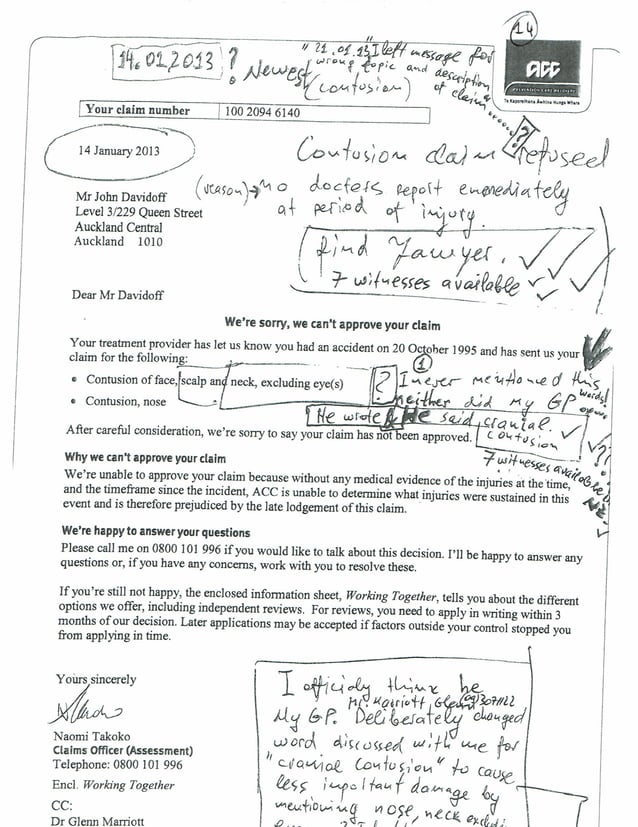 14
14.01.2013 ?
"21.01.13" I left message for
wrong topic and description
of claim
! Newest
(contusion)
ACC
PREVENTION. CARE. RECOVERY.
Te Kaporeihana Āwhina Hunga Whara
Your claim number 100 2094 6140
14 January 2013
Contusion claim refused
?
(reason) → no doctors report emmediately
at period of injury.
Mr John Davidoff
Level 3/229 Queen Street
Auckland Central
Auckland 1010
find Lawyer.
7 witnesses available
Dear Mr Davidoff
We're sorry, we can't approve your claim
Your treatment provider has let us know you had an accident on 20 October 1995 and has sent us your
claim for the following:
• Contusion of face, scalp and neck, excluding eye(s)
• Contusion, nose
1
? I never mentioned this
words!
neither did my GP
He wrote & He said cranial
contusion
After careful consideration, we're sorry to say your claim has not been approved.
7 witnesses available
Why we can't approve your claim
We're unable to approve your claim because without any medical evidence of the injuries at the time,
and the timeframe since the incident, ACC is unable to determine what injuries were sustained in this
event and is therefore prejudiced by the late lodgement of this claim.
We're happy to answer your questions
Please call me on 0800 101 996 if you would like to talk about this decision. I'll be happy to answer any
questions or, if you have any concerns, work with you to resolve these.
If you're still not happy, the enclosed information sheet, Working Together, tells you about the different
options we offer, including independent reviews. For reviews, you need to apply in writing within 3
months of our decision. Later applications may be accepted if factors outside your control stopped you
from applying in time.
Yours sincerely
Naomi Takoko
Claims Officer (Assessment)
Telephone: 0800 101 996
Encl. Working Together
CC:
Dr Glenn Marriott
I officialy think he
Mr. Marriott, Glenn (09)3071122
My GP. Deliberately changed
word discussed with me for
"cranial contusion" to cause
less important damage by
mentioning nose, neck